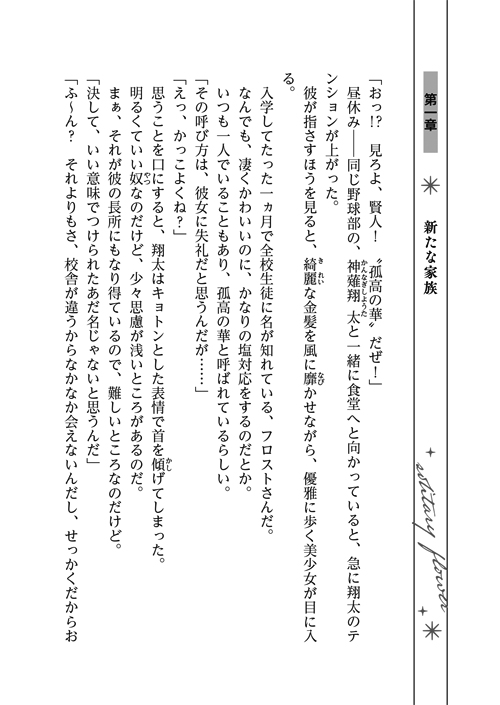 第一章
新たな家族
solitary flower
「おっ!?　見ろよ、賢人！　〝孤高の華〟だぜ！」
昼休み――同じ野球部の、神薙翔太と一緒に食堂へと向かっていると、急に翔太のテ
ンションが上がった。
彼が指さすほうを見ると、綺麗な金髪を風に靡かせながら、優雅に歩く美少女が目に入
る。
入学してたった一ヵ月で全校生徒に名が知れている、フロストさんだ。
なんでも、凄くかわいいのに、かなりの塩対応をするのだとか。
いつも一人でいることもあり、孤高の華と呼ばれているらしい。
「その呼び方は、彼女に失礼だと思うんだが……」
「えっ、かっこよくね？」
思うことを口にすると、翔太はキョトンとした表情で首を傾げてしまった。
明るくていい奴なのだけど、少々思慮が浅いところがあるのだ。
まぁ、それが彼の長所にもなり得ているので、難しいところなのだけど。
「決して、いい意味でつけられたあだ名じゃないと思うんだ」
「ふ～ん？　それよりもさ、校舎が違うからなかなか会えないんだし、せっかくだからお